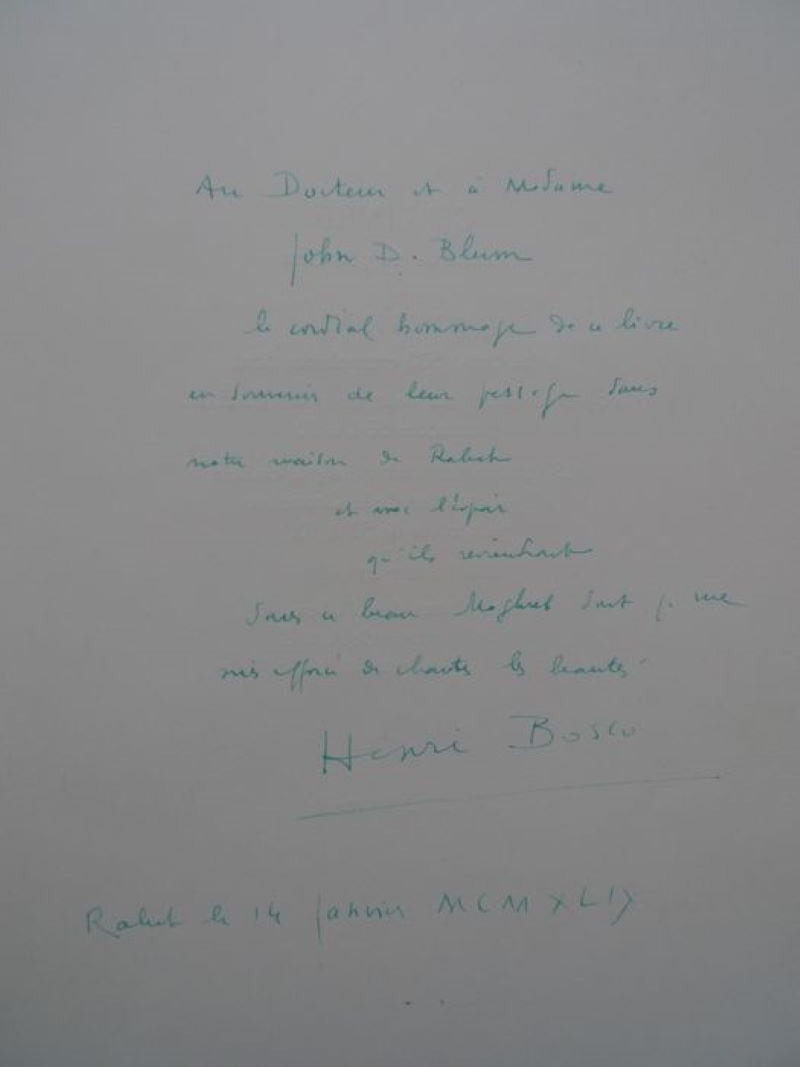 Au Docteur et à Madame
John D. Blum
le cordial hommage de ce livre
en souvenir de leur passage dans
notre maison de Rabat
et avec l'espoir
qu'ils reviendront
dans ce beau Maghreb dont je me
suis efforcé de chanter les beautés
Henri Bosco
Rabat le 14 janvier MCMXLIX